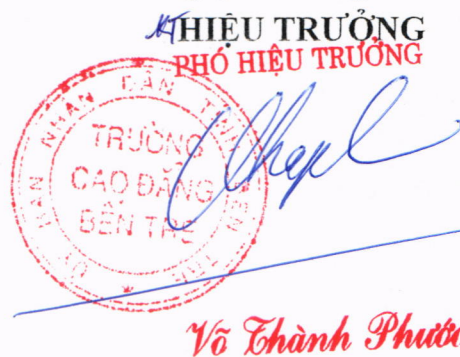 KT HIỆU TRƯỞNG
PHÓ HIỆU TRƯỞNG
ỦY BAN NHÂN DÂN TỈNH BẾN TRE
TRƯỜNG
CAO ĐẲNG
BẾN TRE
Võ Thành Phước